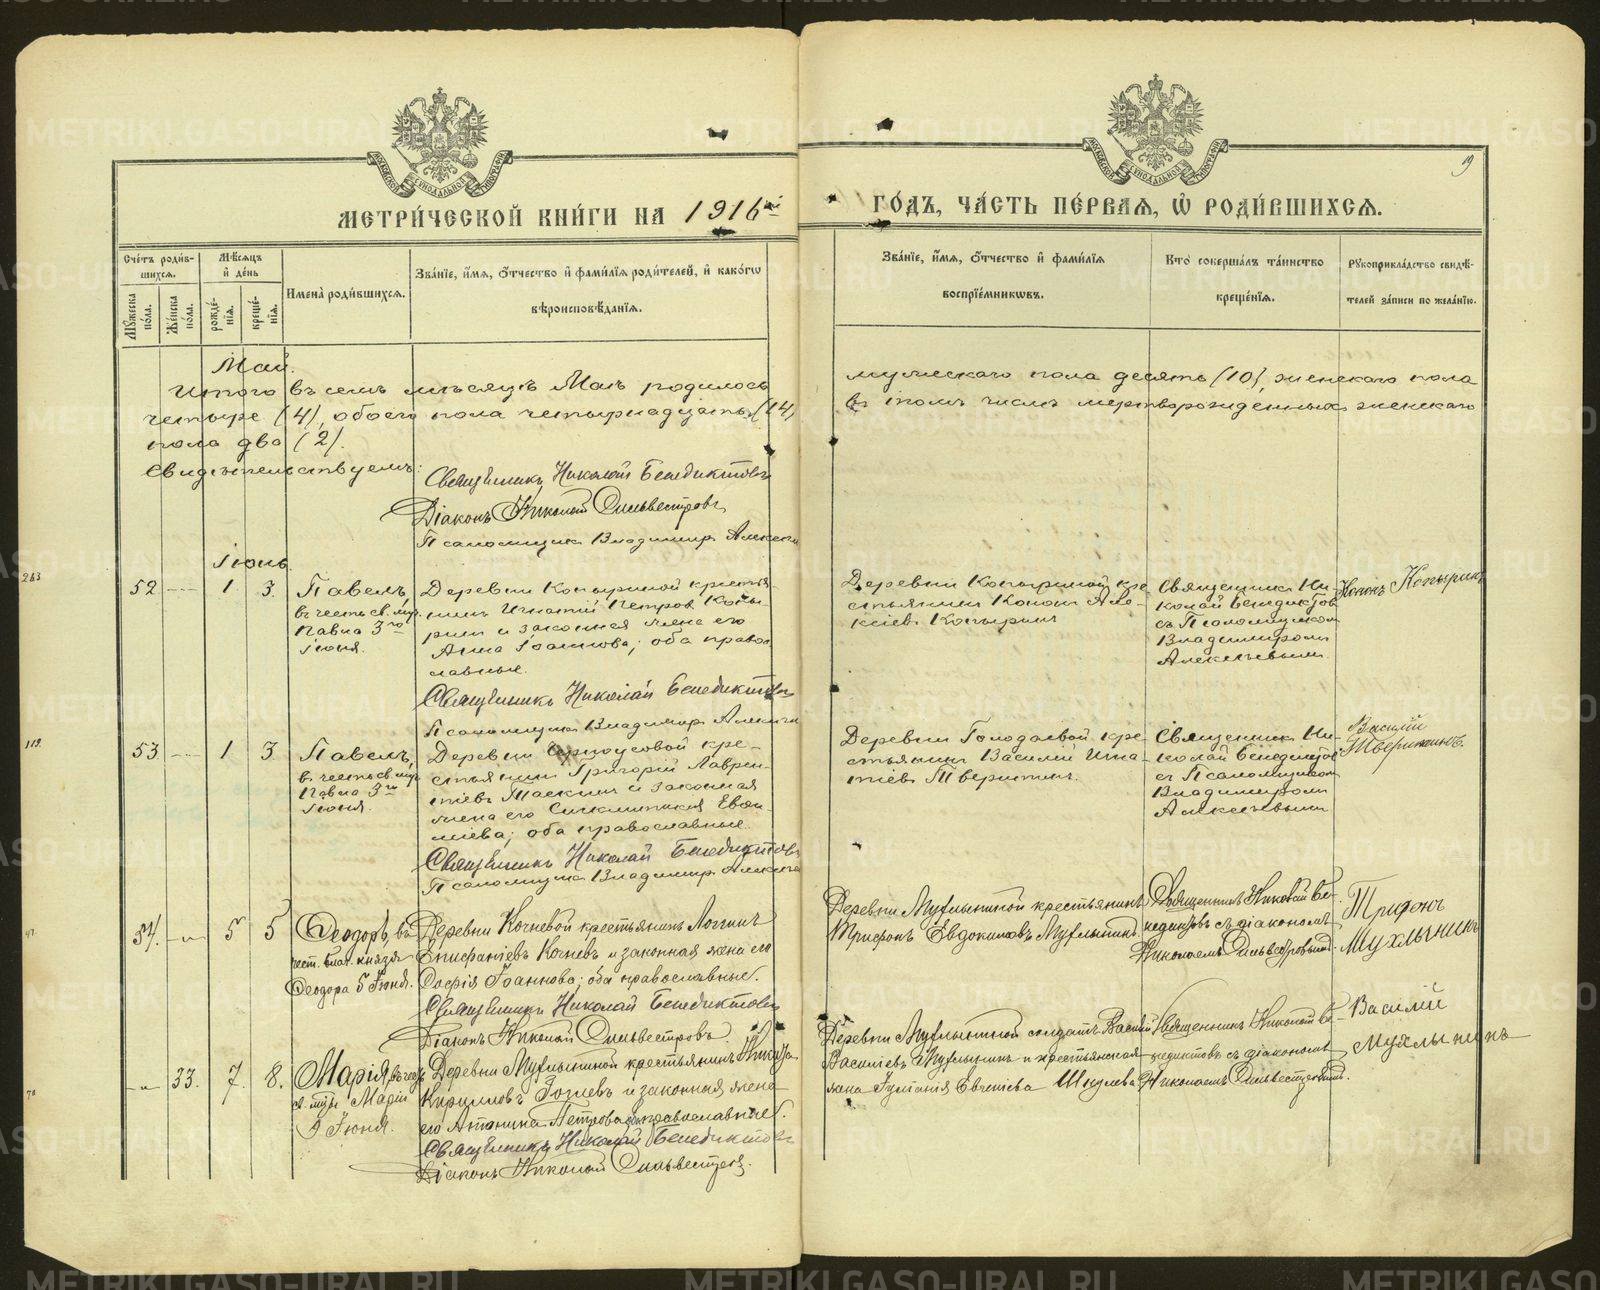 МЕТРИ́ЧЕСКОЙ КНИ́ГИ НА 1916й
ГО́ДЪ, ЧА́СТЬ ПЕ́РВАЯ, Ѡ҆ РОДИ́ВШИХСЯ.
19
Сче́тъ роди́в-
шихся.
Му́жеска по́ла.
Же́нска по́ла.
Мѣ́сяцъ
и҆ де́нь
рожде́-
нїя.
креще́-
нїя.
И҆мена̀ роди́вшихся.
Зва́нїе, и҆́мя, ѻ҆́тчество и҆ фами́лїя роди́телей, и҆ како́гѡ
вѣроисповѣ́данїя.
Зва́нїе, и҆́мя, ѻ҆́тчество и҆ фами́лїя
воспрїе́мникѡвъ.
Кто̀ соверша́лъ та́инство
креще́нїя.
Рꙋкоприкла́дство свидѣ́-
телей за́писи по жела́нїю.
Май.
Итого въ семъ мѣсяцѣ Маѣ родилось
мужескаго пола десять (10), женскаго пола
четыре (4), обоего пола четырнадцать (14),
въ томъ числѣ мертворожденныхъ женскаго
пола два (2).
Свидѣтельствуемъ:
Священникъ Николай Бенедиктовъ
Діаконъ Николай Сильвестровъ
Псаломщикъ Владимиръ
Іюнь
263
52 1. 3.
Павелъ,
въ честь св. муч.
Павла 3го
Іюня.
Деревни Копыриной крестья-
нинъ Игнатій Петровъ Копы-
ринъ и законная жена его
Анна Іоаннова; оба право-
славные.
Священникъ Николай Бенедиктовъ
Псаломщикъ Владимиръ
Деревни Копыриной кре-
стьянинъ Кононъ Але-
ксѣевъ Копыринъ
Священникъ Ни-
колай Бенедиктовъ
съ Псаломщикомъ
Владимиромъ
Алексѣевымъ
Кононъ Копыринъ
119.
53. 1 3
Павелъ,
въ честь св. муч.
Павла 3го
Іюня.
Деревни кре-
стьянинъ Григорій Лаврен-
тіевъ и законная
жена его Синклитикія
оба православные.
Священникъ Николай Бенедиктовъ
Псаломщикъ Владимиръ
Деревни Голодаевой кре-
стьянинъ Василій Игна-
тіевъ
Священникъ Ни-
колай Бенедиктовъ
съ Псаломщикомъ
Владимиромъ
Алексѣевымъ
Василій
54. 5 5
Ѳеодоръ, въ
чест. благ. князя
Ѳеодора 5 Іюня.
Деревни Кочневой крестьянинъ Логгинъ
Епифаніевъ Кочневъ и законная жена его
Софія Іоаннова; оба православные.
Священникъ Николай Бенедиктовъ
Діаконъ Николай Сильвестровъ.
Деревни Мухлыниной крестьянинъ
Трифонъ Евдокимовъ Мухлынинъ.
Священникъ Николай Бе-
недиктовъ съ діакономъ
Николаемъ Сильвестровымъ.
Трифонъ
Мухлынинъ
70
33. 7. 8.
Марія, въ честь
св. Маріи
9 Іюня.
Деревни Мухлыниной крестьянинъ Никита
Кирилловъ и законная жена
его Антонина Петрова; оба православные.
Священникъ Николай Бенедиктовъ
Діаконъ Николай Сильвестровъ.
Деревни Мухлыниной солдатъ Василій
Васильевъ Мухлынинъ и крестьянская
жена
Священникъ Николай Бе-
недиктовъ съ діакономъ
Николаемъ Сильвестровымъ.
Василій
Мухлынинъ
METRIKI.GASO-URAL.RU